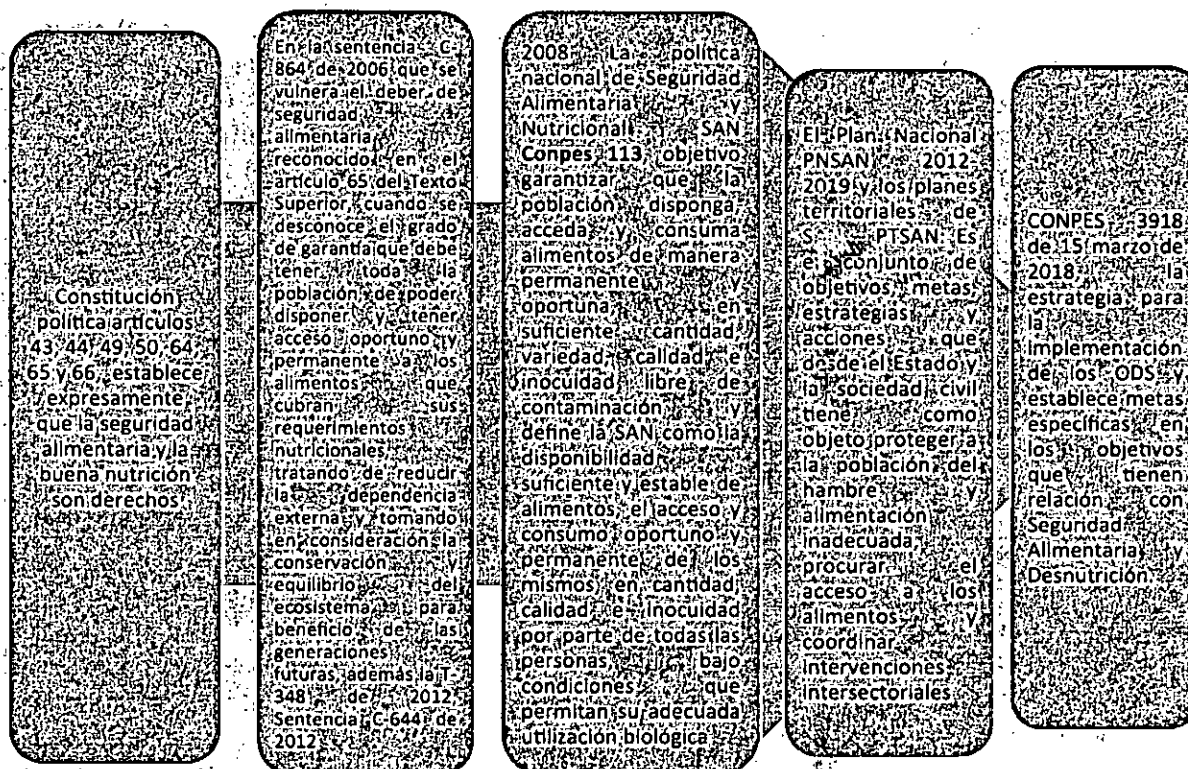 Constitución
política artículos
43, 44, 49, 50, 64,
65 y 66, establece
expresamente
que la seguridad
alimentaria y la
buena nutrición
son derechos
En la sentencia C-
864 de 2006 que se
vulnera el deber de
seguridad
alimentaria
reconocido en el
artículo 65 del Texto
Superior, cuando se
desconoce el grado
de garantía que debe
tener toda la
población, de poder
disponer y tener
acceso oportuno y
permanente a los
alimentos que
cubran sus
requerimientos
nutricionales,
tratando de reducir
la dependencia
externa y tomando
en consideración la
conservación y
equilibrio del
ecosistema, para
beneficio de las
generaciones
futuras, además la T-
348 de 2012,
Sentencia C-644 de
2012
2008 La política
nacional de Seguridad
Alimentaria y
Nutricional SAN
Conpes 113, objetivo
garantizar que la
población disponga,
acceda y consuma
alimentos de manera
permanente y
oportuna, en
suficiente cantidad,
variedad, calidad e
inocuidad libre de
contaminación y
define la SAN como la
disponibilidad
suficiente y estable de
alimentos, el acceso y
consumo oportuno y
permanente de los
mismos en cantidad,
calidad e inocuidad
por parte de todas las
personas, bajo
condiciones que
permitan su adecuada
utilización biológica
El Plan Nacional
PNSAN 2012-
2019 y los planes
territoriales de
S PTSAN Es
el conjunto de
objetivos, metas,
estrategias y
acciones que
desde el Estado y
la sociedad civil
tiene como
objeto proteger a
la población del
hambre y
alimentación
inadecuada,
procurar el
acceso a los
alimentos y
coordinar
intervenciones
intersectoriales
CONPES 3918
de 15 marzo de
2018, la
estrategia para
la
implementación
de los ODS y
establece metas
específicas en
los objetivos
que tienen
relación con
Seguridad
Alimentaria y
Desnutrición.